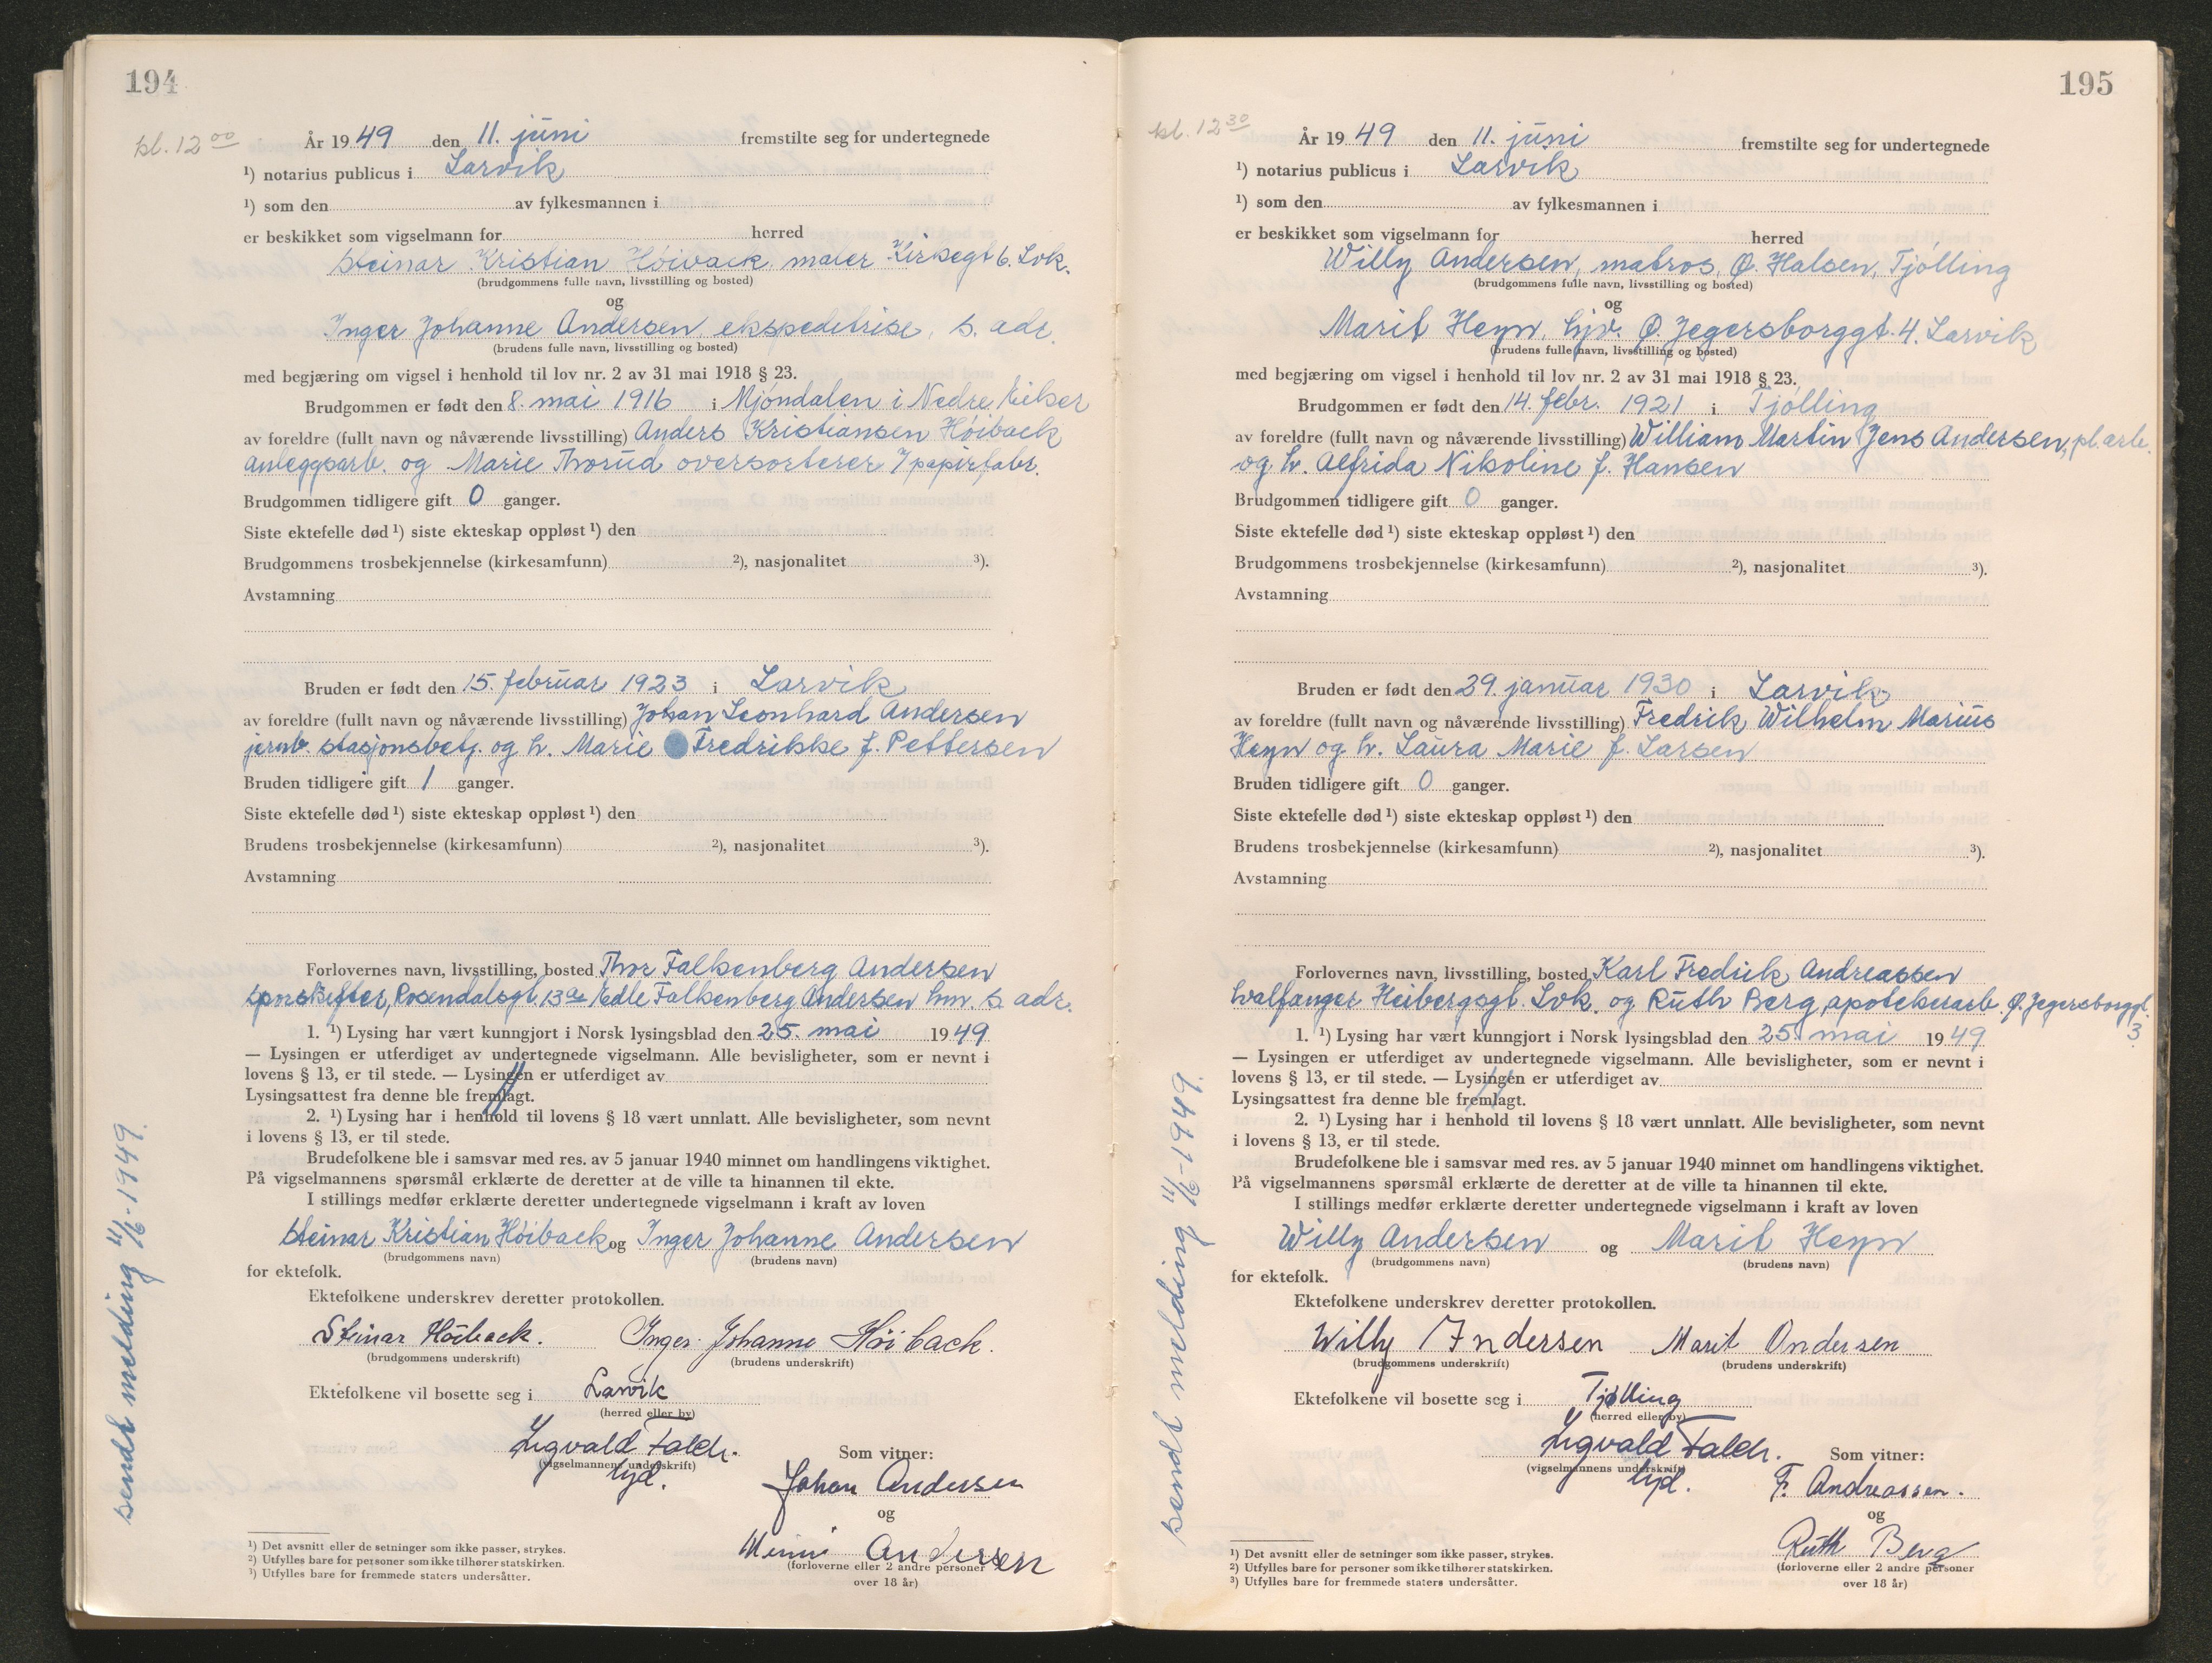 194
kl. 12 00
År 1949 den 11. juni fremstilte seg for undertegnede
¹) notarius publicus i Larvik
¹) som den av fylkesmannen i
er beskikket som vigselmann for herred
Steinar Kristian Höiback, maler Kirkegt 6. Lvk.
(brudgommens fulle navn, livsstilling og bosted)
og
Inger Johanne Andersen, ekspeditrise, s. adr.
(brudens fulle navn, livsstilling og bosted)
med begjæring om vigsel i henhold til lov nr. 2 av 31 mai 1918 § 23.
Brudgommen er født den 8. mai 1916 i Mjöndalen i Nedre Eiker
av foreldre (fullt navn og nåværende livsstilling) Anders Kristiansen Höiback
anleggsarb. og Marie Thorud oversorterer / papirfabr.
Brudgommen tidligere gift 0 ganger.
Siste ektefelle død ¹) siste ekteskap oppløst ¹) den
Brudgommens trosbekjennelse (kirkesamfunn) ²), nasjonalitet ³).
Avstamning
Bruden er født den 15. februar 1923 i Larvik
av foreldre (fullt navn og nåværende livsstilling) Johan Leonhard Andersen
jernb. stasjonsbetj. og h. Marie Fredrikke f. Pettersen
Bruden tidligere gift 1 ganger.
Siste ektefelle død ¹) siste ekteskap oppløst ¹) den
Brudens trosbekjennelse (kirkesamfunn) ²), nasjonalitet ³).
Avstamning
Forlovernes navn, livsstilling, bosted Thor Falkenberg Andersen
sporskifter, Rosendalsgt. 13a Edle Falkenberg Andersen hm. s. adr.
1. ¹) Lysing har vært kunngjort i Norsk lysingsblad den 25. mai 1949
— Lysingen er utferdiget av undertegnede vigselmann. Alle bevisligheter, som er nevnt i
lovens § 13, er til stede. — Lysingen er utferdiget av
Lysingsattest fra denne ble fremlagt.
2. ¹) Lysing har i henhold til lovens § 18 vært unnlatt. Alle bevisligheter, som nevnt
i lovens § 13, er til stede.
Brudefolkene ble i samsvar med res. av 5 januar 1940 minnet om handlingens viktighet.
På vigselmannens spørsmål erklærte de deretter at de ville ta hinannen til ekte.
I stillings medfør erklærte deretter undertegnede vigselmann i kraft av loven
Steinar Kristian Höiback og Inger Johanne Andersen
(brudgommens navn) (brudens navn)
for ektefolk.
Ektefolkene underskrev deretter protokollen.
Steinar Höiback. Inger Johanne Höiback.
(brudgommens underskrift) (brudens underskrift)
Ektefolkene vil bosette seg i Larvik
(herred eller by)
(vigselmannens underskrift)
Som vitner:
Johan Andersen
og
Minni Andersen
(forloverne eller 2 andre personer
over 18 år)
¹) Det avsnitt eller de setninger som ikke passer, strykes.
²) Utfylles bare for personer som ikke tilhører statskirken.
³) Utfylles bare for fremmede staters undersåtter.
sendt melding 11/6-1949.
195
kl. 12 30
År 1949 den 11. juni fremstilte seg for undertegnede
¹) notarius publicus i Larvik
¹) som den av fylkesmannen i
er beskikket som vigselmann for herred
Willy Andersen, matros, Ö. Halsen, Tjölling
(brudgommens fulle navn, livsstilling og bosted)
og
Marit Heyn, hjv. Ö. Jegersborggt. 4. Larvik
(brudens fulle navn, livsstilling og bosted)
med begjæring om vigsel i henhold til lov nr. 2 av 31 mai 1918 § 23.
Brudgommen er født den 14. febr. 1921 i Tjölling
av foreldre (fullt navn og nåværende livsstilling) William Martin Jens Andersen, pl. arb.
og h. Alfrida Nikoline f. Hansen
Brudgommen tidligere gift 0 ganger.
Siste ektefelle død ¹) siste ekteskap oppløst ¹) den
Brudgommens trosbekjennelse (kirkesamfunn) ²), nasjonalitet ³).
Avstamning
Bruden er født den 29. januar 1930 i Larvik
av foreldre (fullt navn og nåværende livsstilling) Fredrik Wilhelm Marius
Heyn og h. Laura Marie f. Larsen
Bruden tidligere gift 0 ganger.
Siste ektefelle død ¹) siste ekteskap oppløst ¹) den
Brudens trosbekjennelse (kirkesamfunn) ²), nasjonalitet ³).
Avstamning
Forlovernes navn, livsstilling, bosted Karl Fredrik Andreassen
hvalfanger Heibergsgt. Lvk. og Ruth Berg, apotekerarb. Ö. Jegersborggt.
3
1. ¹) Lysing har vært kunngjort i Norsk lysingsblad den 25. mai 1949
— Lysingen er utferdiget av undertegnede vigselmann. Alle bevisligheter, som er nevnt i
lovens § 13, er til stede. — Lysingen er utferdiget av
Lysingsattest fra denne ble fremlagt.
2. ¹) Lysing har i henhold til lovens § 18 vært unnlatt. Alle bevisligheter, som nevnt
i lovens § 13, er til stede.
Brudefolkene ble i samsvar med res. av 5 januar 1940 minnet om handlingens viktighet.
På vigselmannens spørsmål erklærte de deretter at de ville ta hinannen til ekte.
I stillings medfør erklærte deretter undertegnede vigselmann i kraft av loven
Willy Andersen og Marit Heyn
(brudgommens navn) (brudens navn)
for ektefolk.
Ektefolkene underskrev deretter protokollen.
Willy Andersen Marit Andersen
(brudgommens underskrift) (brudens underskrift)
Ektefolkene vil bosette seg i Tjølling
(herred eller by)
(vigselmannens underskrift)
Som vitner:
F. Andreassen.
og
Ruth Berg
(forloverne eller 2 andre personer
over 18 år)
¹) Det avsnitt eller de setninger som ikke passer, strykes.
²) Utfylles bare for personer som ikke tilhører statskirken.
³) Utfylles bare for fremmede staters undersåtter.
sendt melding 11/6-1949.